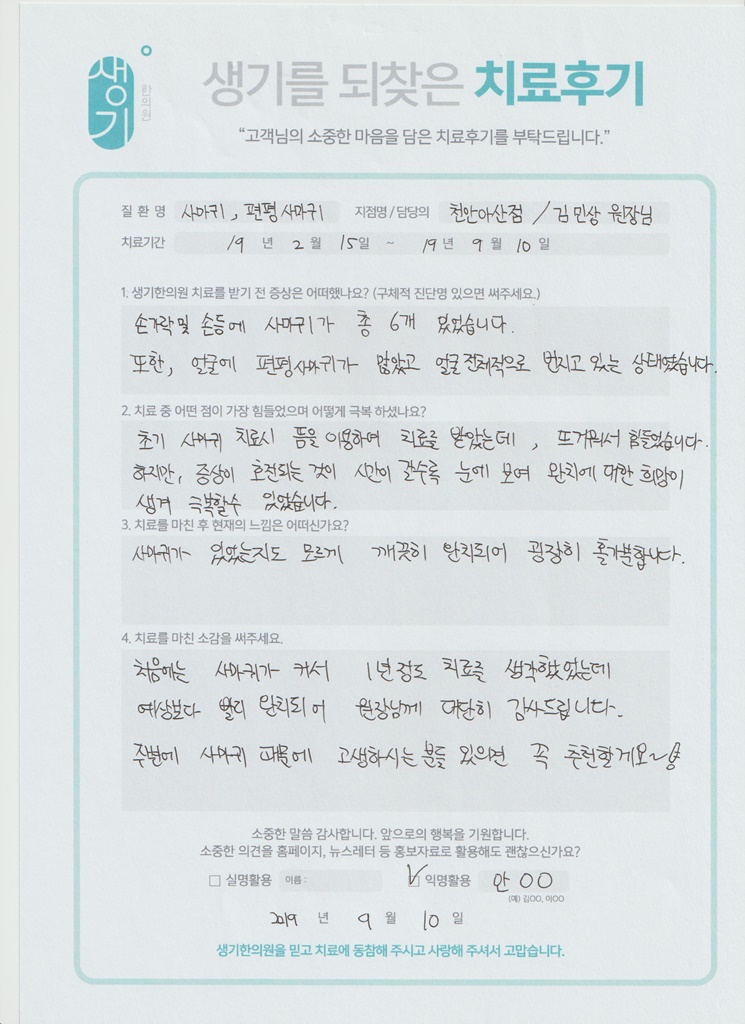 생기
한의원
생기를 되찾은 치료후기
“고객님의 소중한 마음을 담은 치료후기를 부탁드립니다.”
질 환 명 사마귀, 편평사마귀 지점명 / 담당의 천안아산점 / 김민상 원장님
치료기간 19 년 2 월 15일 ~ 19 년 9 월 10 일
1. 생기한의원 치료를 받기 전 증상은 어떠했나요? (구체적 진단명 있으면 써주세요.)
손가락및 손등에 사마귀가 총 6개 있었습니다.
또한, 얼굴에 편평사마귀가 많았고 얼굴전체적으로 번지고 있는 상태였습니다.
2. 치료 중 어떤 점이 가장 힘들었으며 어떻게 극복 하셨나요?
초기 사마귀 치료시 뜸을 이용하며 치료를 받았는데, 뜨거워서 힘들었습니다.
하지만, 증상이 호전되는 것이 시간이 갈수록 눈에 보여 완치에 대한 희망이
생겨 극복할수 있었습니다.
3. 치료를 마친 후 현재의 느낌은 어떠신가요?
사마귀가 있었는지도 모르게 깨끗히 완치되어 굉장히 홀가분합니다.
4. 치료를 마친 소감을 써주세요.
처음에는 사마귀가 커서 1년정도 치료를 생각했었는데
예상보다 빨리 완치되어 원장님께 대단히 감사드립니다.
주변에 사마귀 때문에 고생하시는 분들 있으면 꼭 추천할게요~
소중한 말씀 감사합니다. 앞으로의 행복을 기원합니다.
소중한 의견을 홈페이지, 뉴스레터 등 홍보자료로 활용해도 괜찮으신가요?
□ 실명활용 이름 : ☑ 익명활용 안 OO
(예) 김OO, 이OO
2019 년 9 월 10 일
생기한의원을 믿고 치료에 동참해 주시고 사랑해 주셔서 고맙습니다.